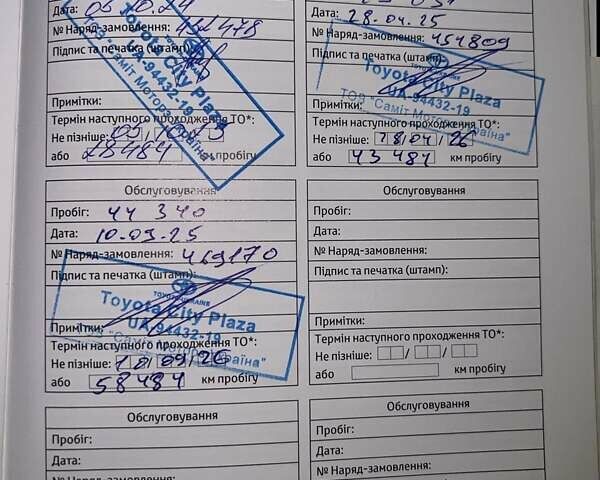 Дата: 05 10.24
№ Наряд-замовлення: 432478
Підпис та печатка (штамп):
Toyota City Plaza
UA-94432-19
ТОВ "Саміт Моторз Україна"
Примітки:
Термін наступного проходження ТО*:
Не пізніше: 05/10/25
або 28484 км пробігу
Дата: 28.04.25
№ Наряд-замовлення: 454809
Підпис та печатка (штамп):
TOYOTA UKRAINE
Toyota City Plaza
UA-94432-19
ТОВ "Саміт Моторз Україна"
Примітки:
Термін наступного проходження ТО*:
Не пізніше: 28/04/26
або 43484 км пробігу
Обслуговування
Пробіг: 44 340
Дата: 10.09.25
№ Наряд-замовлення: 469170
Підпис та печатка (штамп):
TOYOTA UKRAINE
Toyota City Plaza
UA-94432-19
ТОВ "Саміт Моторз Україна"
Примітки:
Термін наступного проходження ТО*:
Не пізніше: 10/09/26
або 58484 км пробігу
Обслуговування
Пробіг:
Дата:
№ Наряд-замовлення:
Підпис та печатка (штамп):
Примітки:
Термін наступного проходження ТО*:
Не пізніше: / /
або км пробігу
Обслуговування
Пробіг:
Дата:
№ Наряд-замовлення:
Обслуговування
Пробіг:
Дата:
№ Наряд-замовлення: